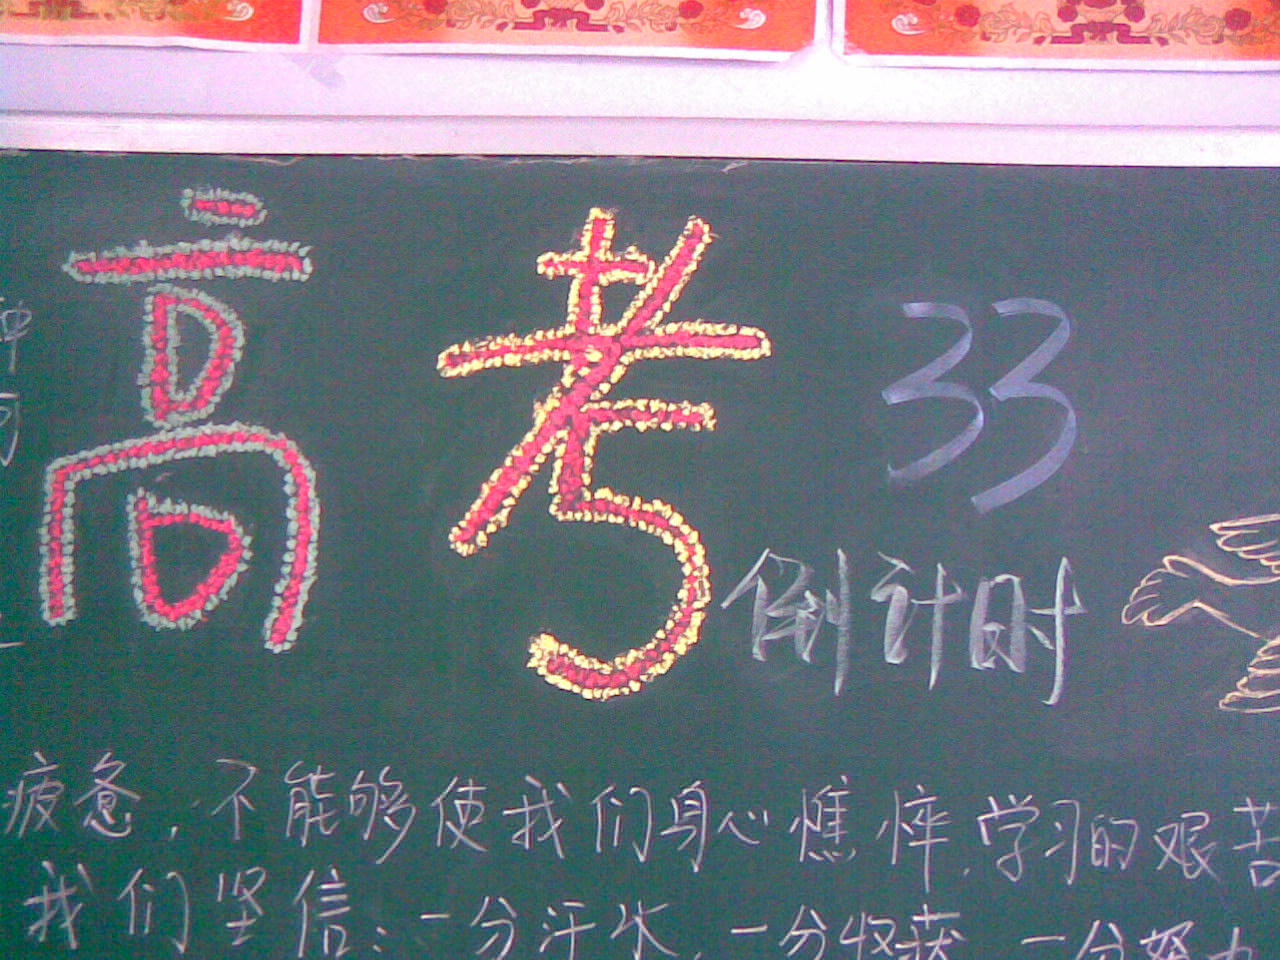 高考 33
倒计时
疲惫，不能够使我们身心憔悴.学习的艰苦
我们坚信：一分汗水，一分收获 一分努力